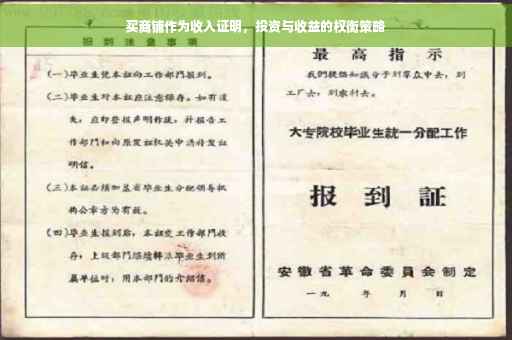 买商铺作为收入证明，投资与收益的权衡策略
报到注意事项
(一)毕业生凭本证向工作部门报到。
(二)毕业生对本证应注意保存。如有遗
失，应即登报声明作废，并报告工
作部门和向原发证机关申请补发证
明信。
(三)本证必须加盖省毕业生分配领导机
构公章方为有效。
(四)毕业生报到后，本证交工作部门收
存；上级部门
毕业生到所
属单位时，用本部门的介绍信。
最高指示
我们提倡知识分子到群众中去，到
工厂去，到农村去。
大专院校毕业生统一分配工作
报到证
安徽省革命委员会制定
一九 年 月 日